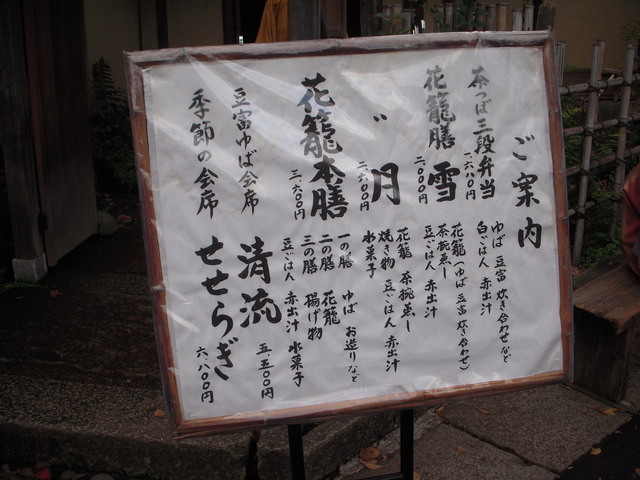 ご案内
茶つぼ三段弁当
一.六八〇円
ゆば 豆富 炊き合わせなど
白ごはん 赤出汁
花籠膳 雪
二.〇〇〇円
花籠(ゆば 豆富 炊き合わせ)
茶椀蒸し
豆ごはん 赤出汁
〃 月
二.六〇〇円
花籠 茶椀蒸し
焼き物 豆ごはん 赤出汁
水菓子
花籠本膳
三.六〇〇円
一の膳 ゆば お造りなど
二の膳 花籠
三の膳 揚げ物
豆ごはん 赤出汁 水菓子
豆富ゆば会席 清流
五.五〇〇円
季節の会席 せせらぎ
六.八〇〇円